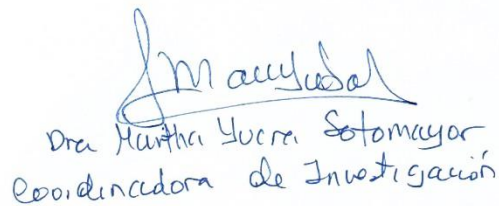 Dra Martha Yucra Sotomayor
Coordinadora de Investigación